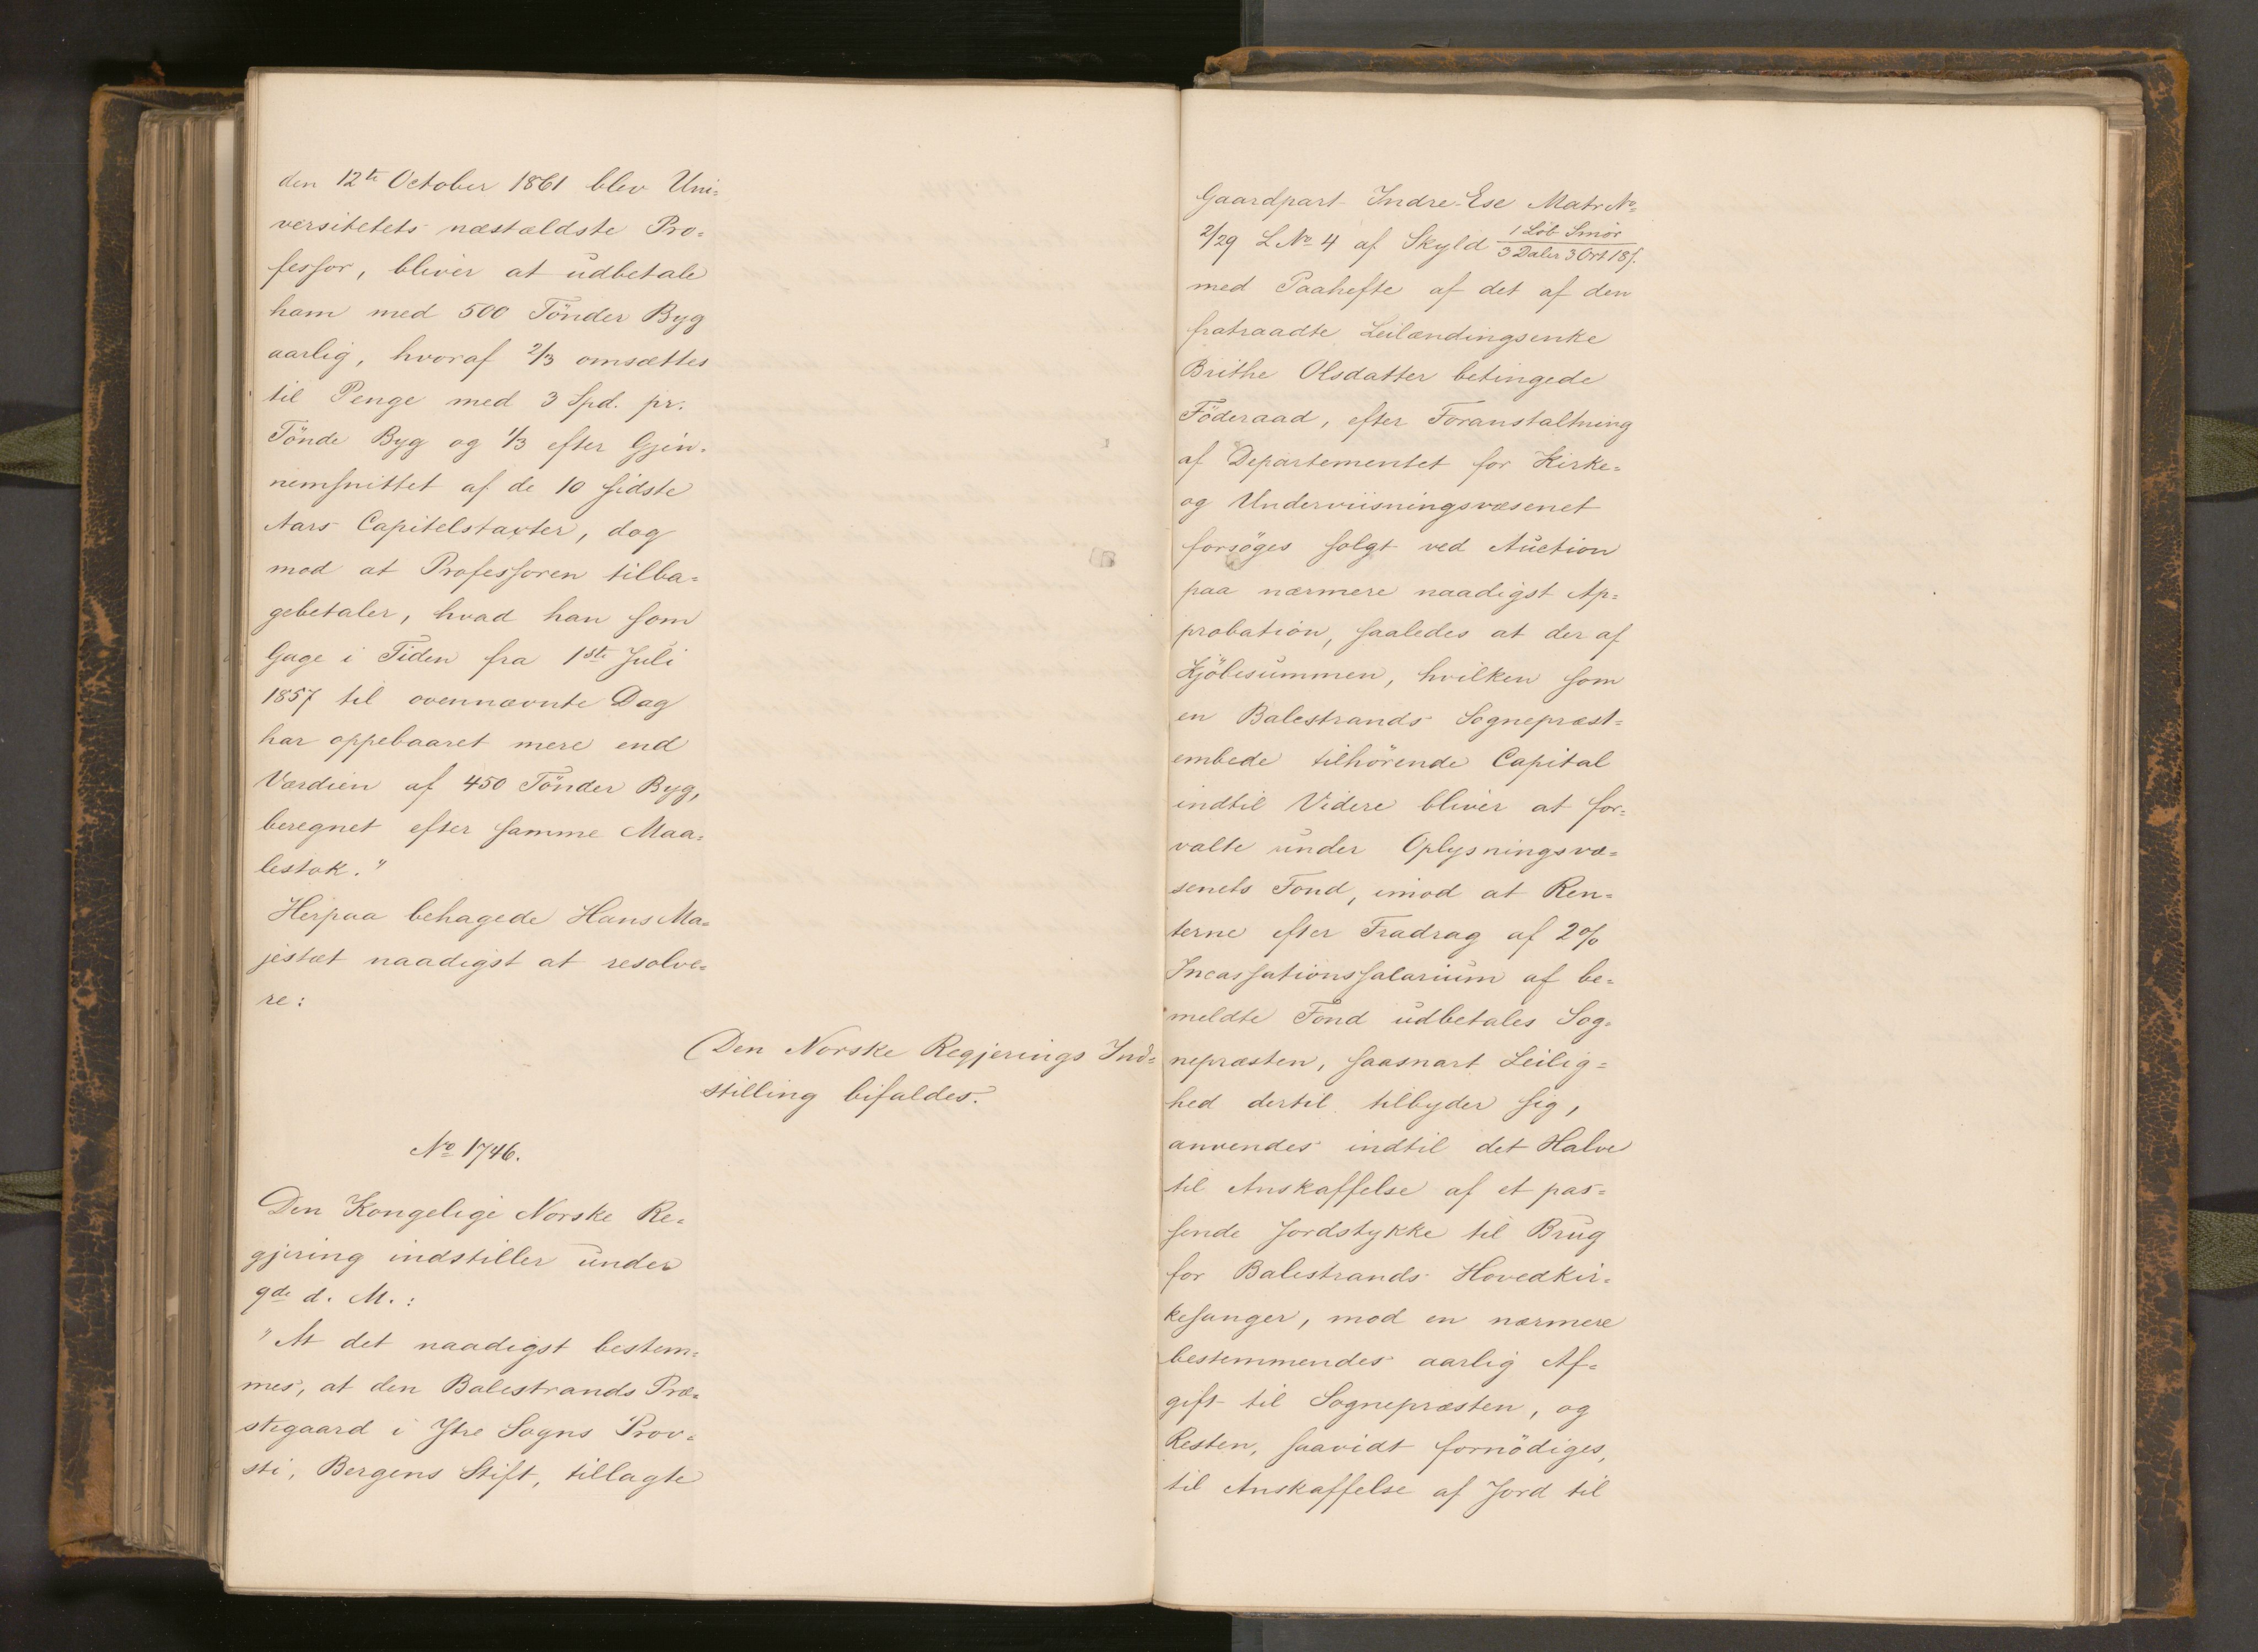 den 12te October 1861 blev Uni=
versitetets næstældste Pro=
fessor, bliver at udbetale
ham med 500 Tönder Byg
aarlig, hvoraf 2/3 omsættes
til Penge med 3 Spd. pr.
Tönde Byg og 1/3 efter Gjen=
nemsnittet af de 10 sidste
Aars Capitelstaxter, dog
mod at Professoren tilba=
gebetaler, hvad han som
Gage i Tiden fra 1ste Juli
1857 til ovennævnte Dag
har oppebaaret mere end
Værdien af 450 Tönder Byg,
beregnet efter samme Maa=
lestok."
Herpaa behagede Hans Ma=
jestæt naadigst at resolve=
re:
Den Norske Regjerings Ind=
stilling bifaldes.
No 1746.
Den Kongelige Norske Re=
gjering indstiller under
9de d. M.:
"At det naadigst bestem=
mes, at den Balestrands Præ=
stegaard i Ytre Sogns Prov=
sti, Bergens Stift, tillagte
Gaardpart Indre-Ese Matr No
2/29 L No 4 af Skyld 1 Löb Smör / 3 Daler 3 Ort 18 s.
med Paahefte af det af den
fratraadte Leilændingsenke
Brithe Olsdatter betingede
Föderaad, efter Foranstaltning
af Departementet for Kirke=
og Underviisningsvæsenet
forsöges solgt ved Auction
paa nærmere naadigst Ap=
probation, saaledes at der af
Kjöbesummen, hvilken som
en Balestrands Sognepræst=
embede tilhörende Capital
indtil Videre bliver at for=
valte under Oplysningsvæ=
senets Fond, imod at Ren=
terne efter Fradrag af 2%
Incassationssalarium af be=
meldte Fond udbetales Sog=
nepræsten, saasnart Leilig=
hed dertil tilbyder sig,
anvendes indtil det Halve
til Anskaffelse af et pas=
sende Jordstykke til Brug
for Balestrands Hovedkir=
kesanger, mod en nærmere
bestemmendes aarlig Af=
gift til Sognepræsten, og
Resten, saavidt fornödiges,
til Anskaffelse af Jord til